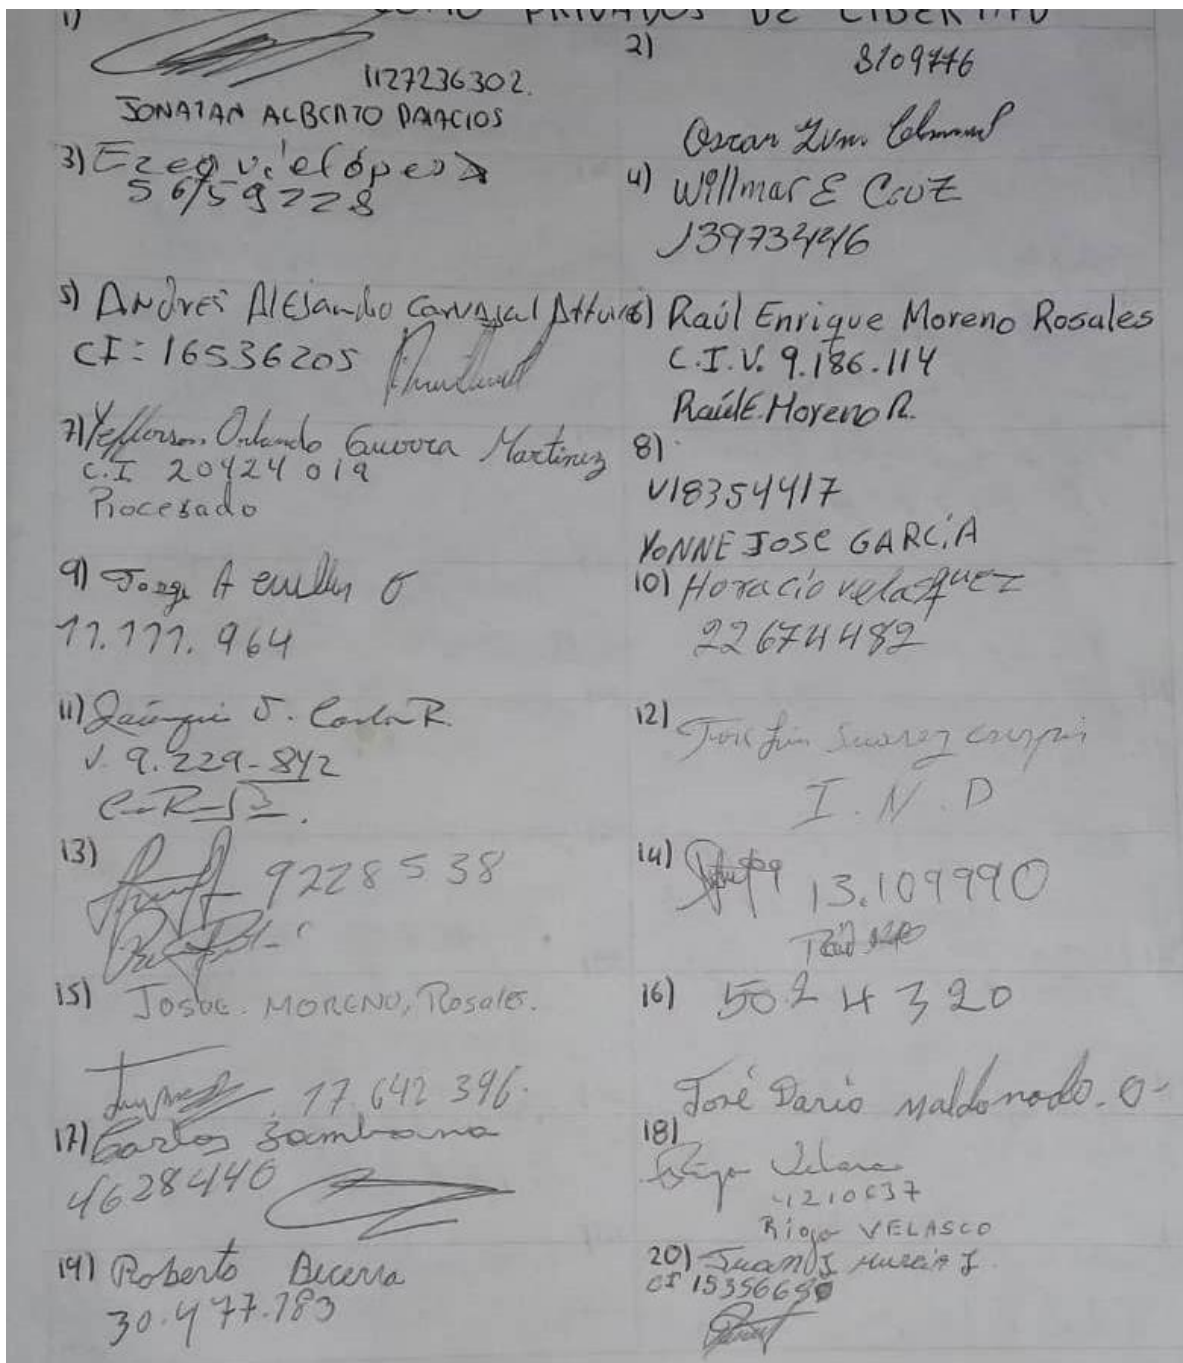 COMO PRIVADOS DE LIBERTAD
1)
1127236302.
JONATAN ALBERTO PALACIOS
2)
8109776
Oscar
3) Ezequiel López
56159228
4) Willmar E Cruz
5) ANdres AlEJandro Carvajal
CI: 16536205
6) Raúl Enrique Moreno Rosales
C.I.V. 9.186.114
Raúl E. Moreno R.
7) Yefferson Orlando Guerra Martinez
C.I 20424019
Procesado
8)
V18354417
YONNE JOSE GARCÍA
9) Jorge A
11.111.964
10) Horacio velasquez
22674482
11) J.
V. 9.229-842
12) Suarez
I.N.D
13) 9228538
14) 13.109990
15) JOSUE. MORENO, Rosales.
17.642.396.
16) 5024320
José Dario Maldonado. O-
17) Carlos Zambrano
4628440
18)
4210637
Rigo VELASCO
19) Roberto Becerra
30.477.783
20) Juan J
CI 153566